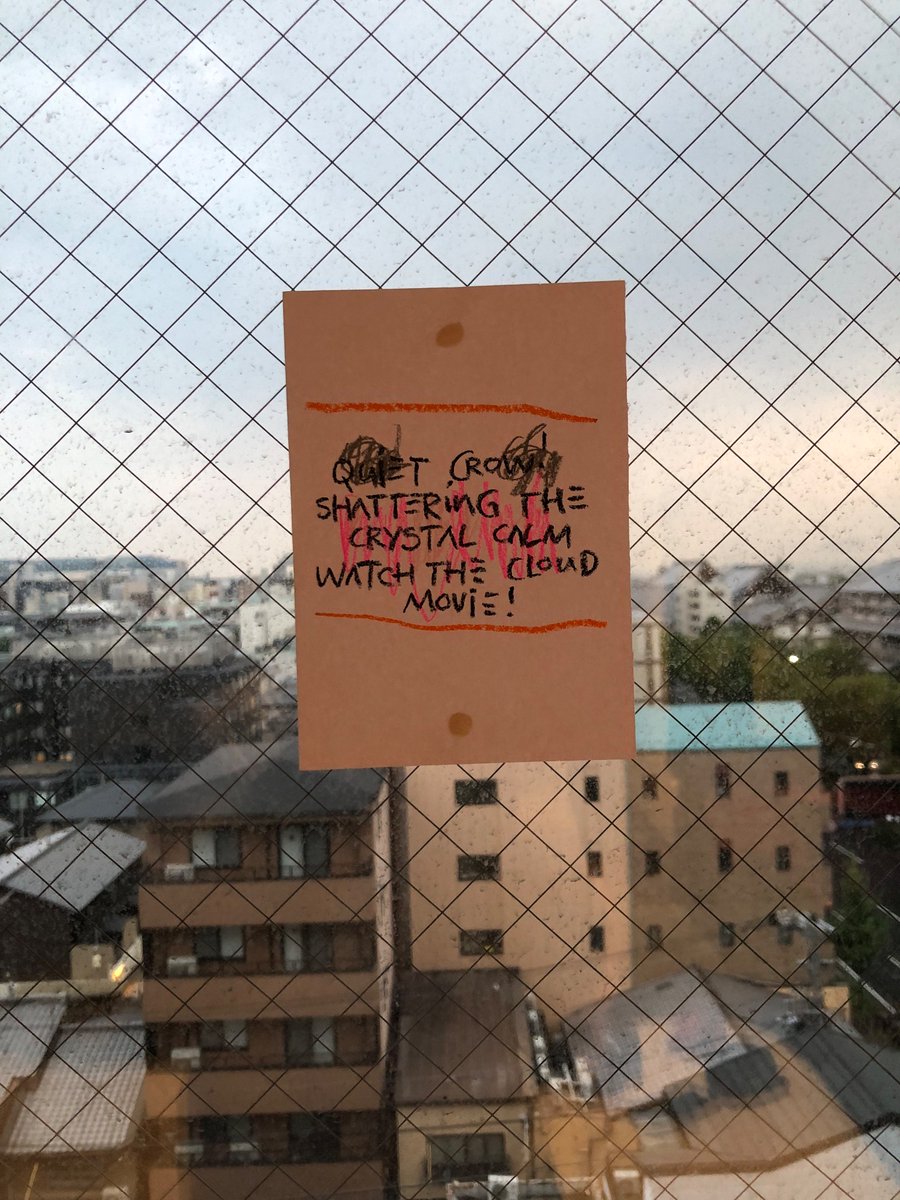 QUIET CROW!
SHATTERING THE
CRYSTAL CALM
WATCH THE CLOUD
MOVIE!